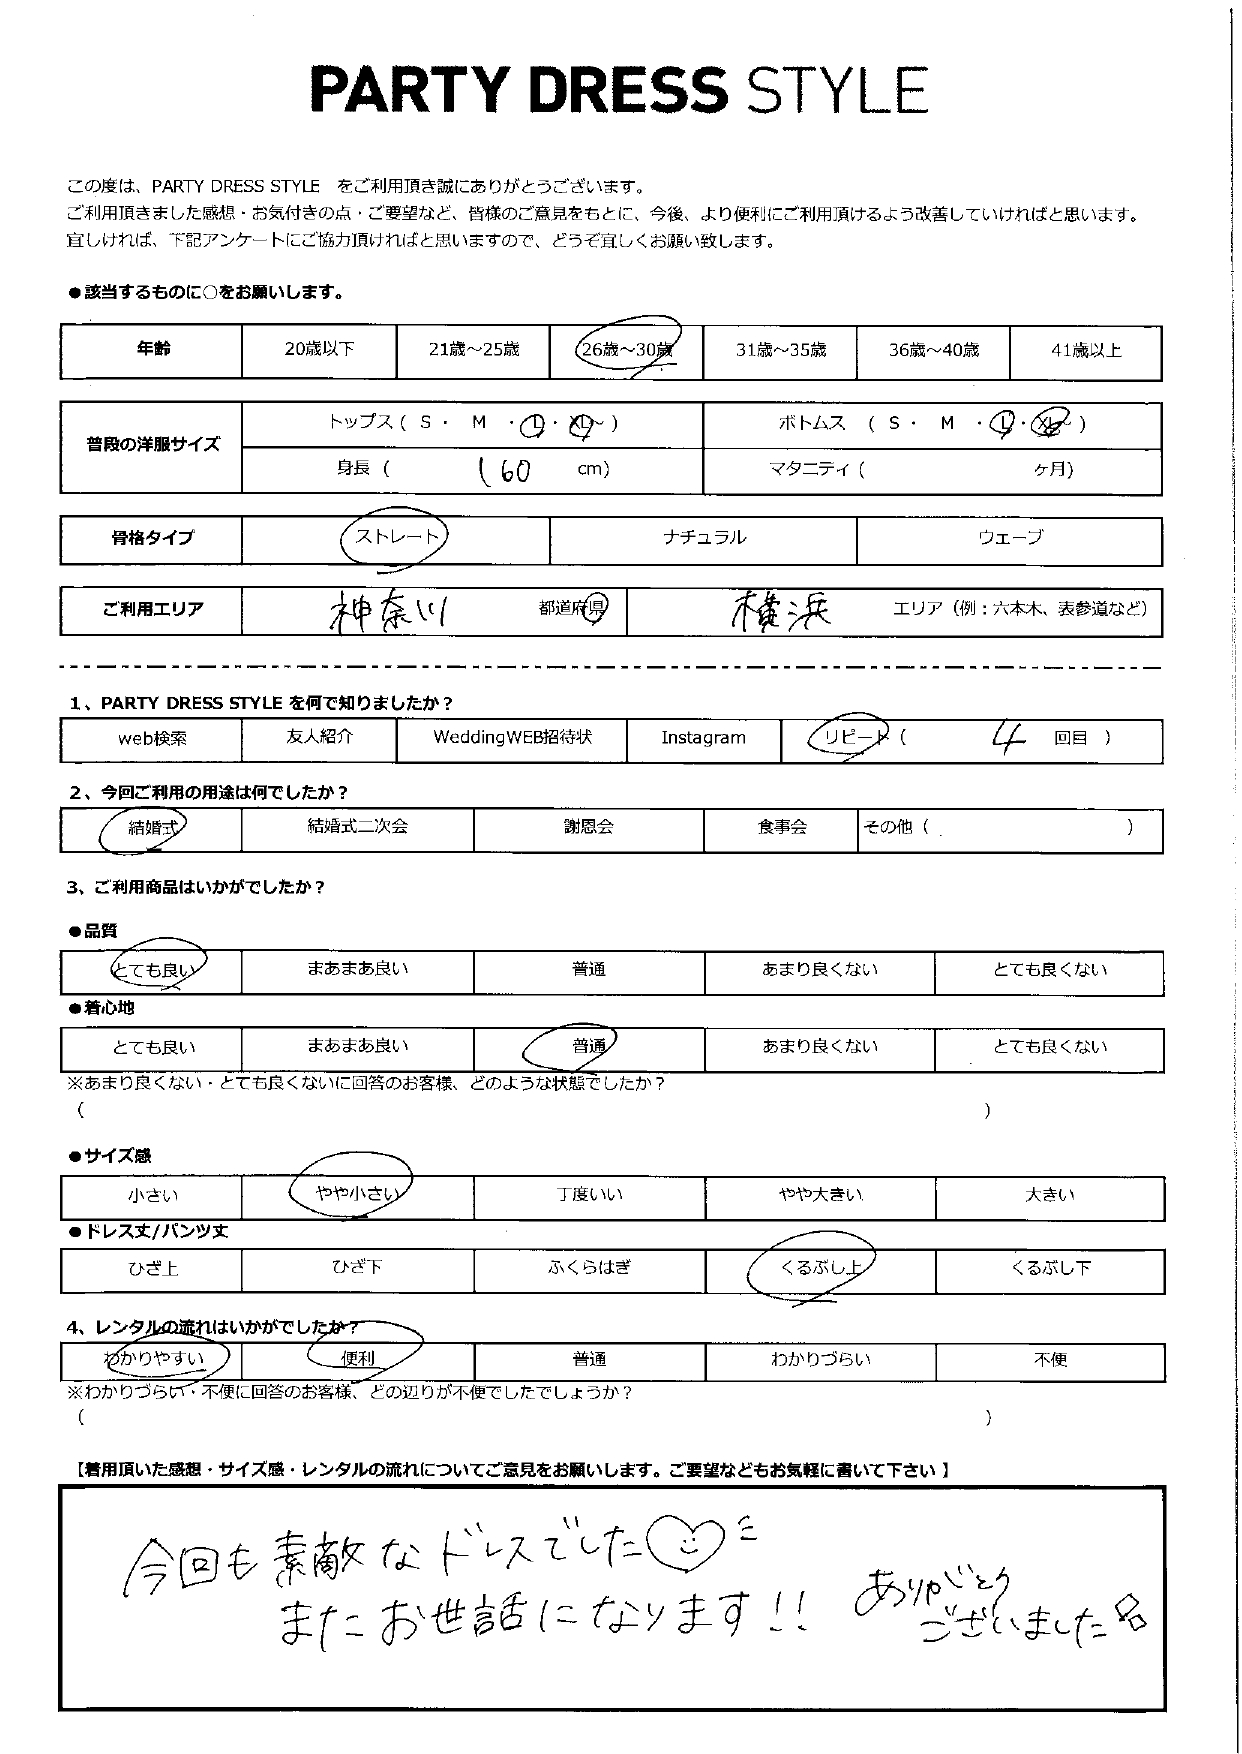 PARTY DRESS STYLE
この度は、PARTY DRESS STYLE をご利用頂き誠にありがとうございます。
ご利用頂きました感想・お気付きの点・ご要望など、皆様のご意見をもとに、今後、より便利にご利用頂けるよう改善していければと思います。
宜しければ、下記アンケートにご協力頂ければと思いますので、どうぞ宜しくお願い致します。
●該当するものに○をお願いします。
年齢 20歳以下 21歳～25歳 26歳～30歳 31歳～35歳 36歳～40歳 41歳以上
普段の洋服サイズ トップス ( S ・ M ・ L ・ XL～ ) ボトムス ( S ・ M ・ L ・ XL～ )
身長 ( 160 cm) マタニティ ( ヶ月)
骨格タイプ ストレート ナチュラル ウェーブ
ご利用エリア 神奈川 都道府県 横浜 エリア（例：六本木、表参道など）
1、PARTY DRESS STYLE を何で知りましたか？
web検索 友人紹介 WeddingWEB招待状 Instagram リピート ( 4 回目 )
2、今回ご利用の用途は何でしたか？
結婚式 結婚式二次会 謝恩会 食事会 その他 ( )
3、ご利用商品はいかがでしたか？
●品質
とても良い まあまあ良い 普通 あまり良くない とても良くない
●着心地
とても良い まあまあ良い 普通 あまり良くない とても良くない
※あまり良くない・とても良くないに回答のお客様、どのような状態でしたか？
( )
●サイズ感
小さい やや小さい 丁度いい やや大きい 大きい
●ドレス丈/パンツ丈
ひざ上 ひざ下 ふくらはぎ くるぶし上 くるぶし下
4、レンタルの流れはいかがでしたか？
わかりやすい 便利 普通 わかりづらい 不便
※わかりづらい・不便に回答のお客様、どの辺りが不便でしたでしょうか？
( )
【着用頂いた感想・サイズ感・レンタルの流れについてご意見をお願いします。ご要望などもお気軽に書いて下さい 】
今回も素敵なドレスでした
またお世話になります!! ありがとう
ございました